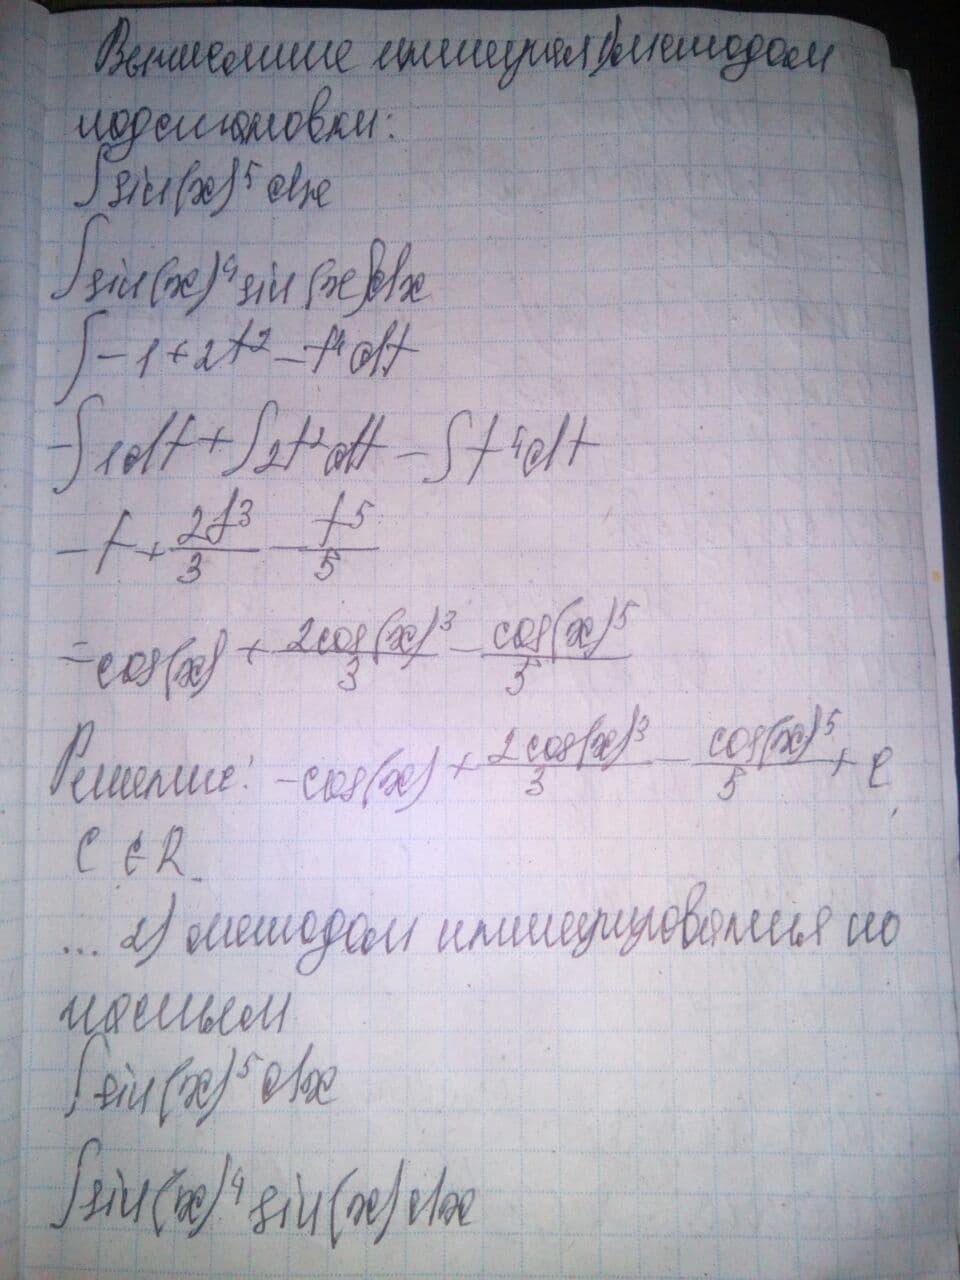 Вычисление интеграл 1) методом
подстановки:
∫sin(x)⁵ dx
∫sin(x)⁴ sin(x)dx
∫-1+2t²-t⁴dt
-∫1dt+∫2t²dt-∫t⁴dt
-t+2t³/3-t⁵/5
-cos(x)+2cos(x)³/3-cos(x)⁵/5
Решение: -cos(x)+2cos(x)³/3-cos(x)⁵/5+C,
C∈R
... 2) методом интегрирования по
частям
∫sin(x)⁵dx
∫sin(x)⁴ sin(x)dx